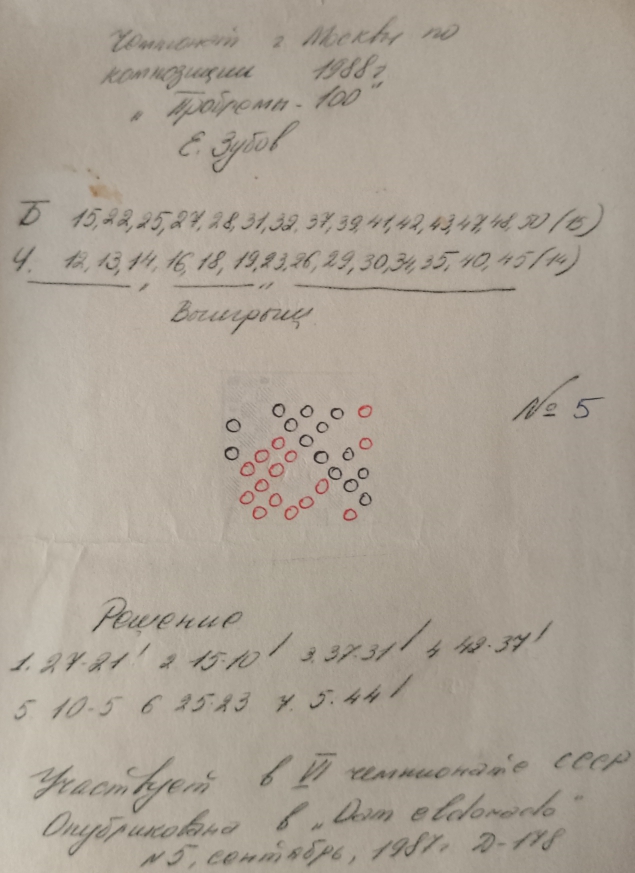 Чемпионат г Москвы по
композиции 1988г
"Проблемы-100"
Е. Зубов
Б 15,22,25,27,28,31,32,37,39,41,42,43,47,48,50 (15)
Ч. 12,13,14,16,18,19,23,26,29,30,34,35,40,45 (14)
Выигрыш
№ 5
Решение
1. 27-21! 2 15-10! 3. 37-31! 4 42-37!
5. 10-5 6 25-23 7. 5-44!
Участвует в VI чемпионате СССР
Опубликована в „Dam eldorado"
N5, сентябрь, 1987г. D-178